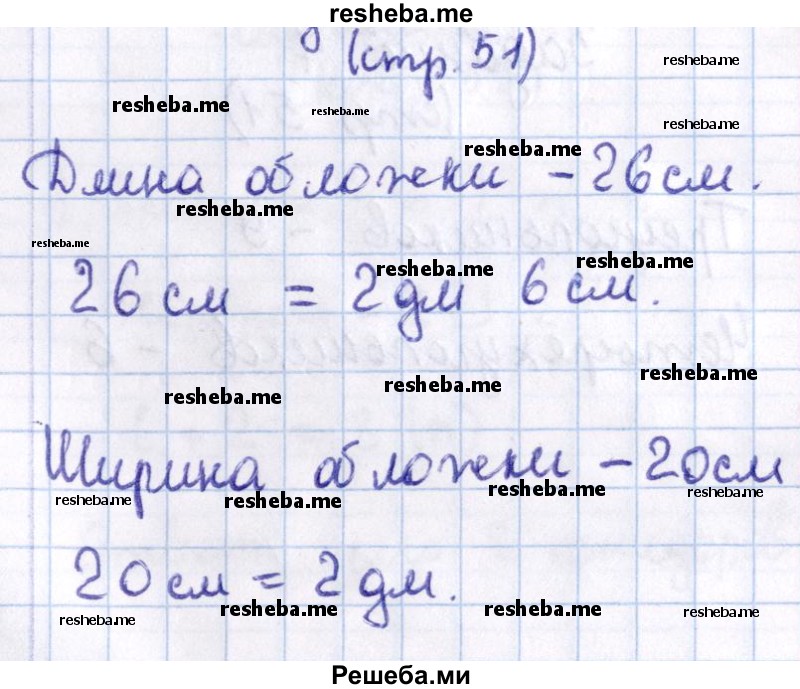 resheba.me
(стр. 51)
resheba.me
resheba.me
resheba.me
resheba.me
resheba.me
Длина обложки - 26 см.
resheba.me
resheba.me
resheba.me
resheba.me
26 см = 2 дм 6 см.
resheba.me
resheba.me
resheba.me
Ширина обложки - 20 см
resheba.me
resheba.me
resheba.me
resheba.me
20 см = 2 дм.
resheba.me
resheba.me
resheba.me
resheba.me
Решеба.ми